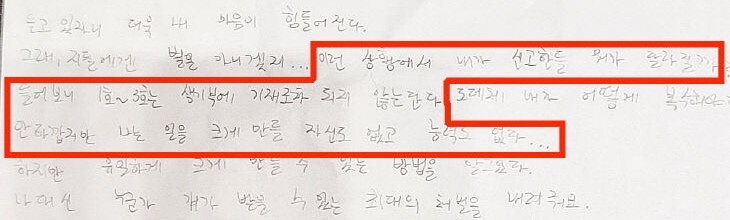 듣고 있자니 더욱 내 마음이 힘들어진다.
그래, 지들에겐 별일 아니겠지... 이런 상황에서 내가 신고한들 뭐가 달라질까
들어보니 1호~3호는 생기부에 기재조차 되지 않는단다. 도데체 내가 어떻게 복수해야
안타깝지만 나는 일을 크게 만들 자신도 없고 능력도 없다...
하지만 유일하게 크게 만들 수 있는 방법을 알고있다.
나 대신 누군가 걔가 받을 수 있는 최대의 처벌을 내려줘요.